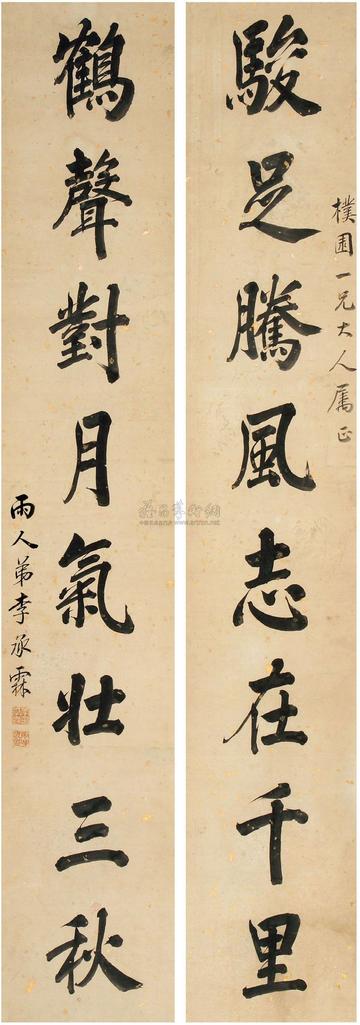 樸園一兄大人屬正
駿足騰風志在千里
鶴聲對月氣壯三秋
雨人弟李承霖
www.artron.net